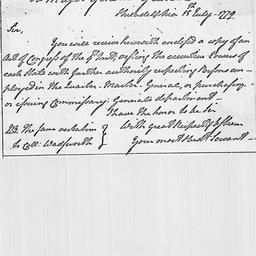 Philadelphia 15th July 1779
Sir,
You will receive herewith enclosed a copy of an
Act of Congress of the 9th Instt, vesting the executive Powers of
each State with further authority respecting Persons em-
ployed in the Quarter-Master-General, or purchasing,
or issuing Commissary General's department
I have the honor to be Sir
NB. The same verbatim } With great Respect & Esteem
to Coll. Wadsworth } Your most Obedt Servant